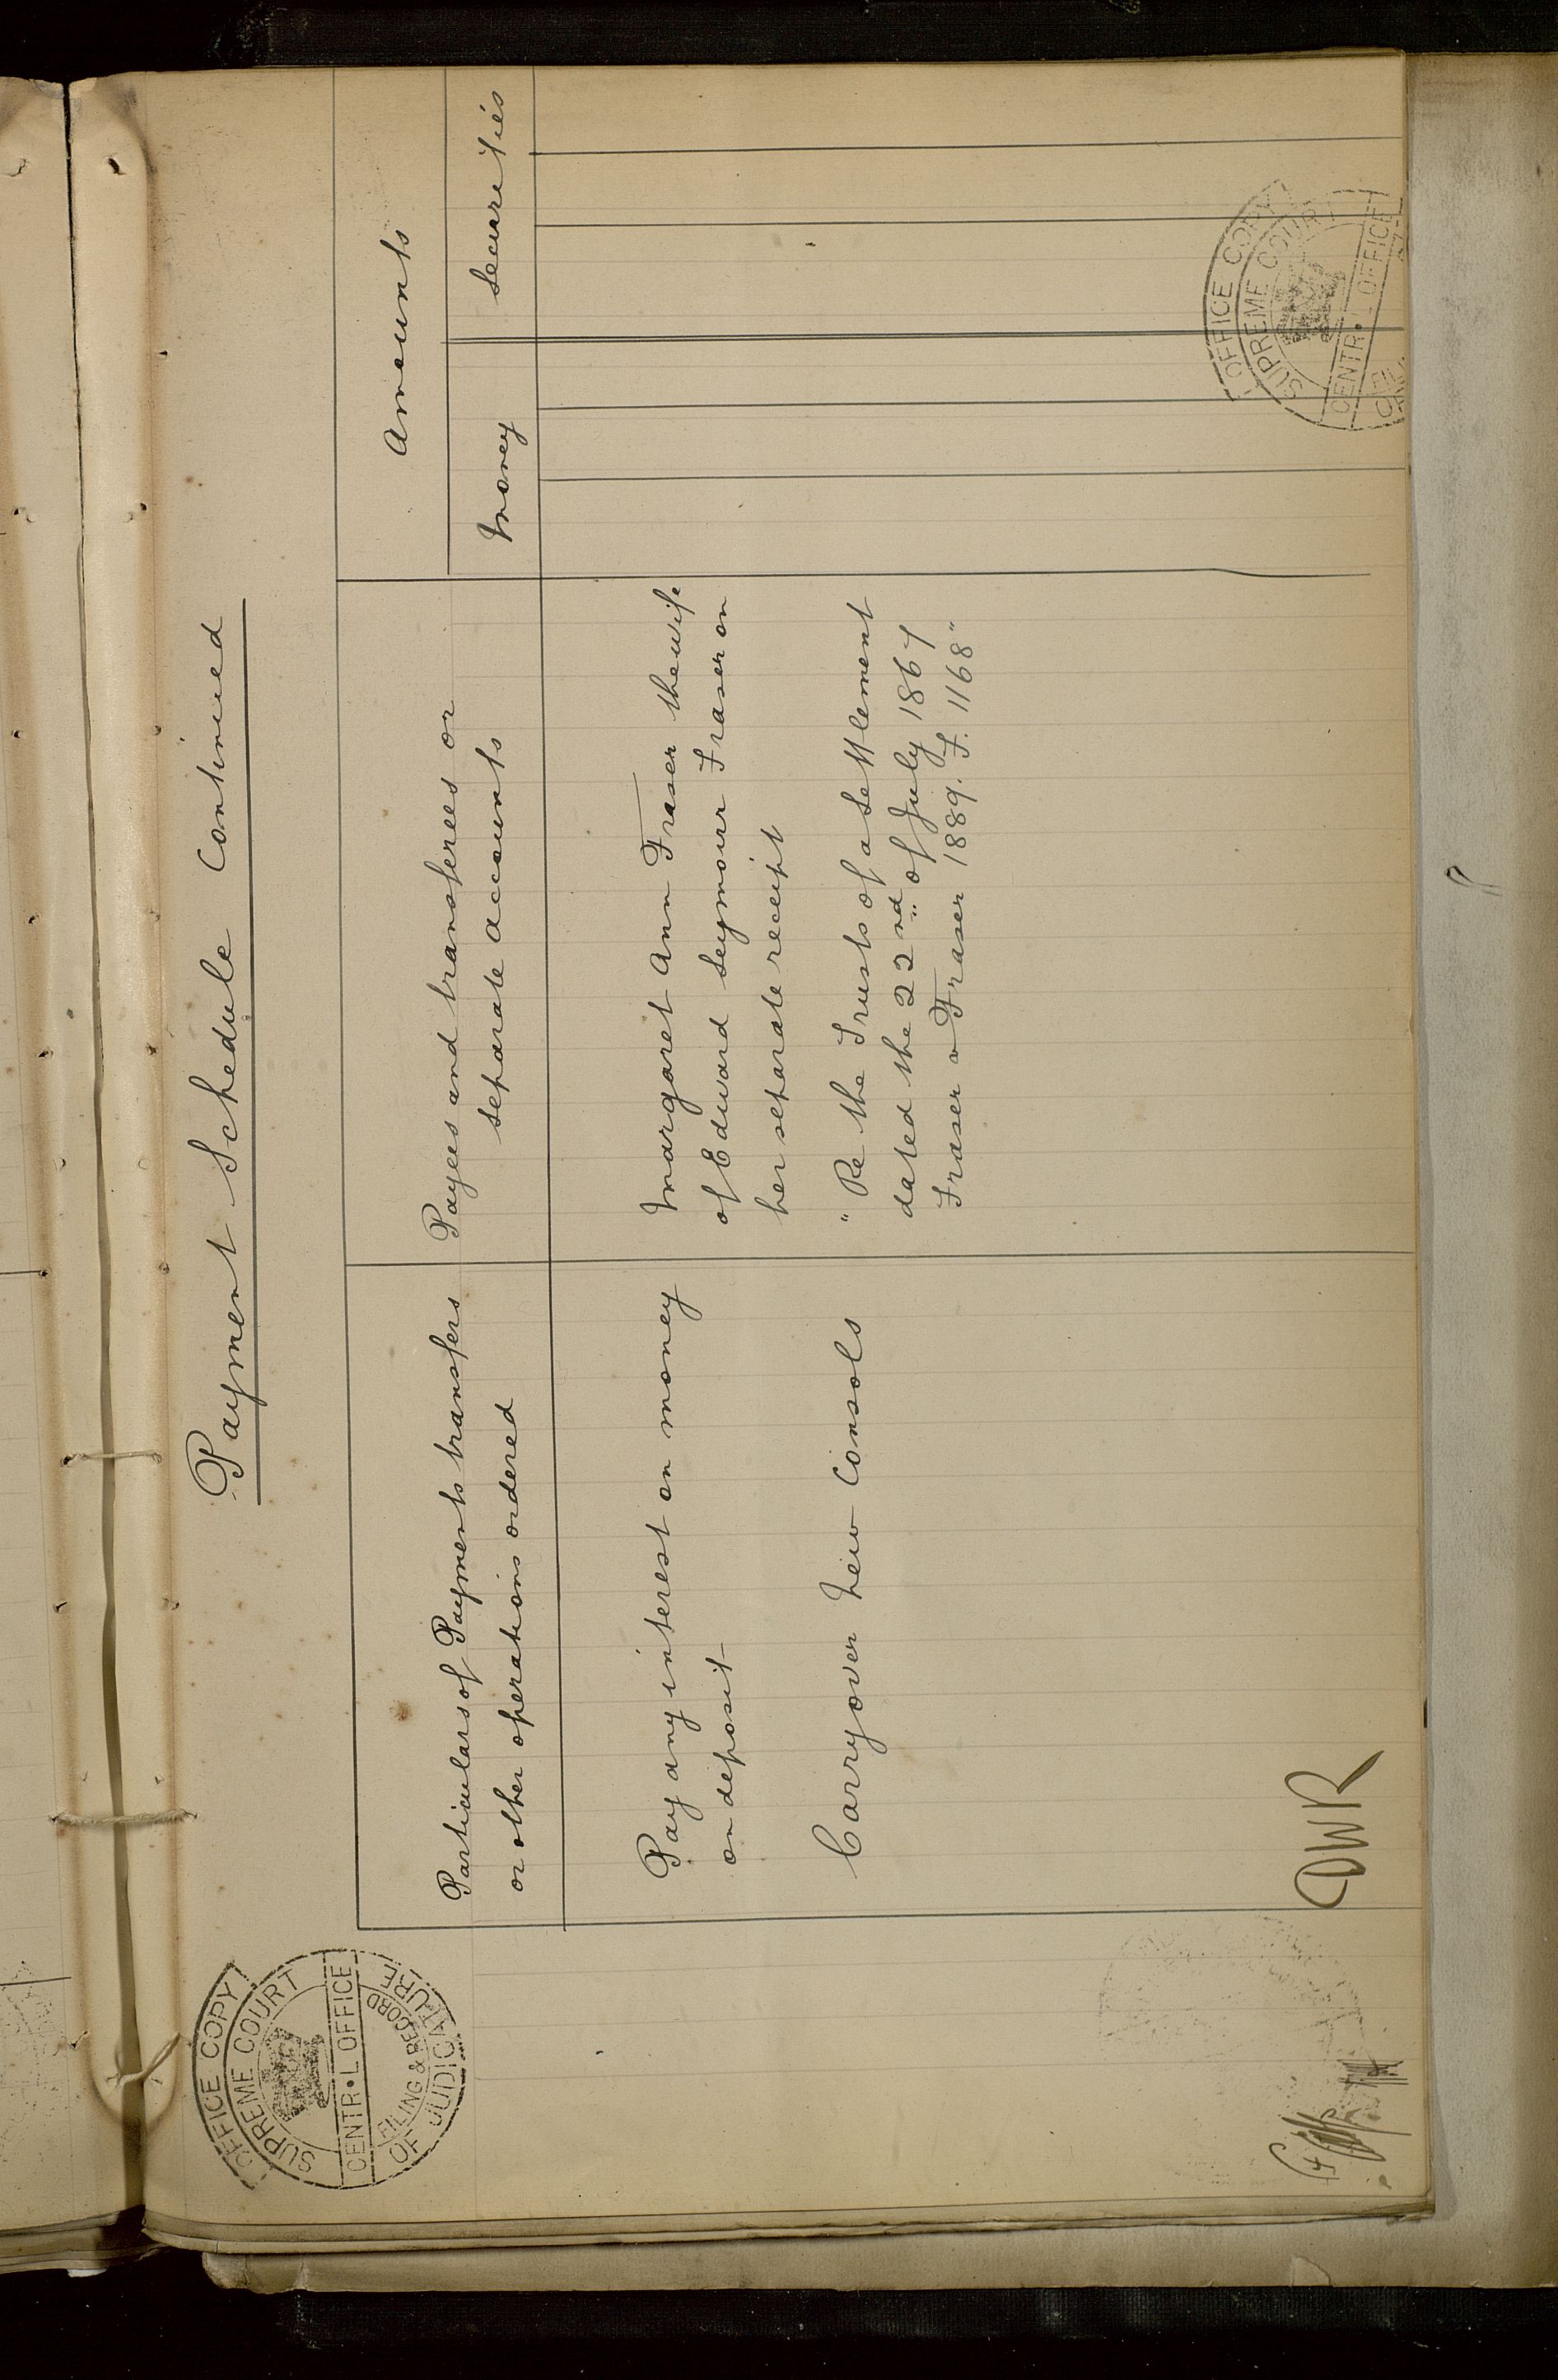 Payment Schedule Continued
Particulars of Payments transfers
or other operations ordered
Payees and transferees or
separate accounts
Amounts
Money
Securities
Pay any interest on money
on deposit
Margaret Ann Fraser the wife
of Edward Seymour Fraser on
her separate receipt
Carry over New Consols
"Re the Trusts of a Settlement
dated the 22nd of July 1867
Fraser v Fraser 1889. F. 1168"
DWR
OFFICE COPY
SUPREME COURT
CENTR•L OFFICE
FILING & RECORD
OF JUDICATURE
OFFICE COPY
SUPREME COURT
CENTR•L OFFICE